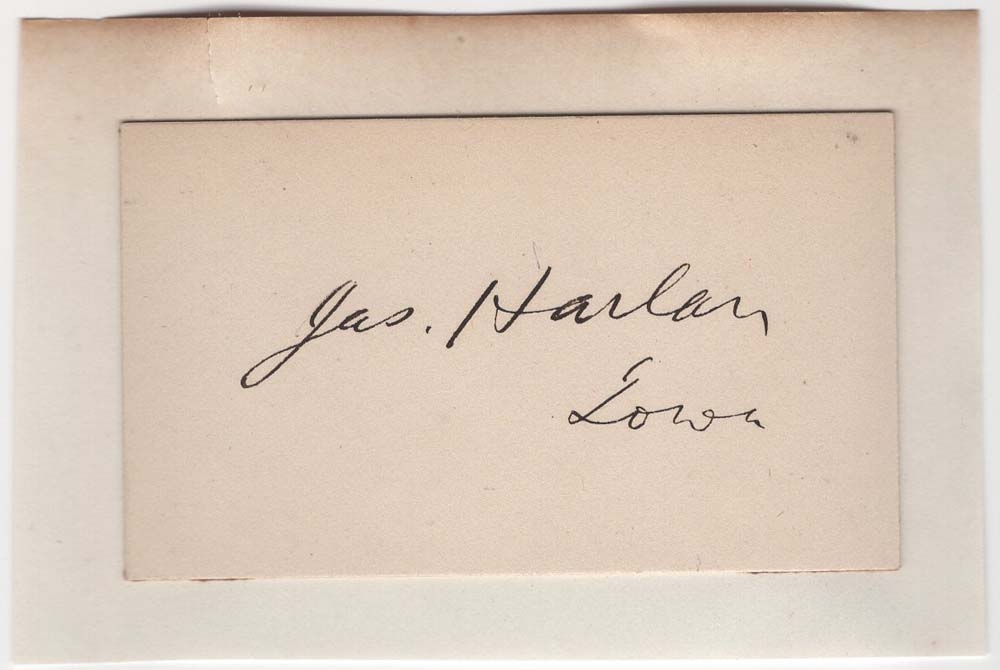 Jas. Harlan
Iowa